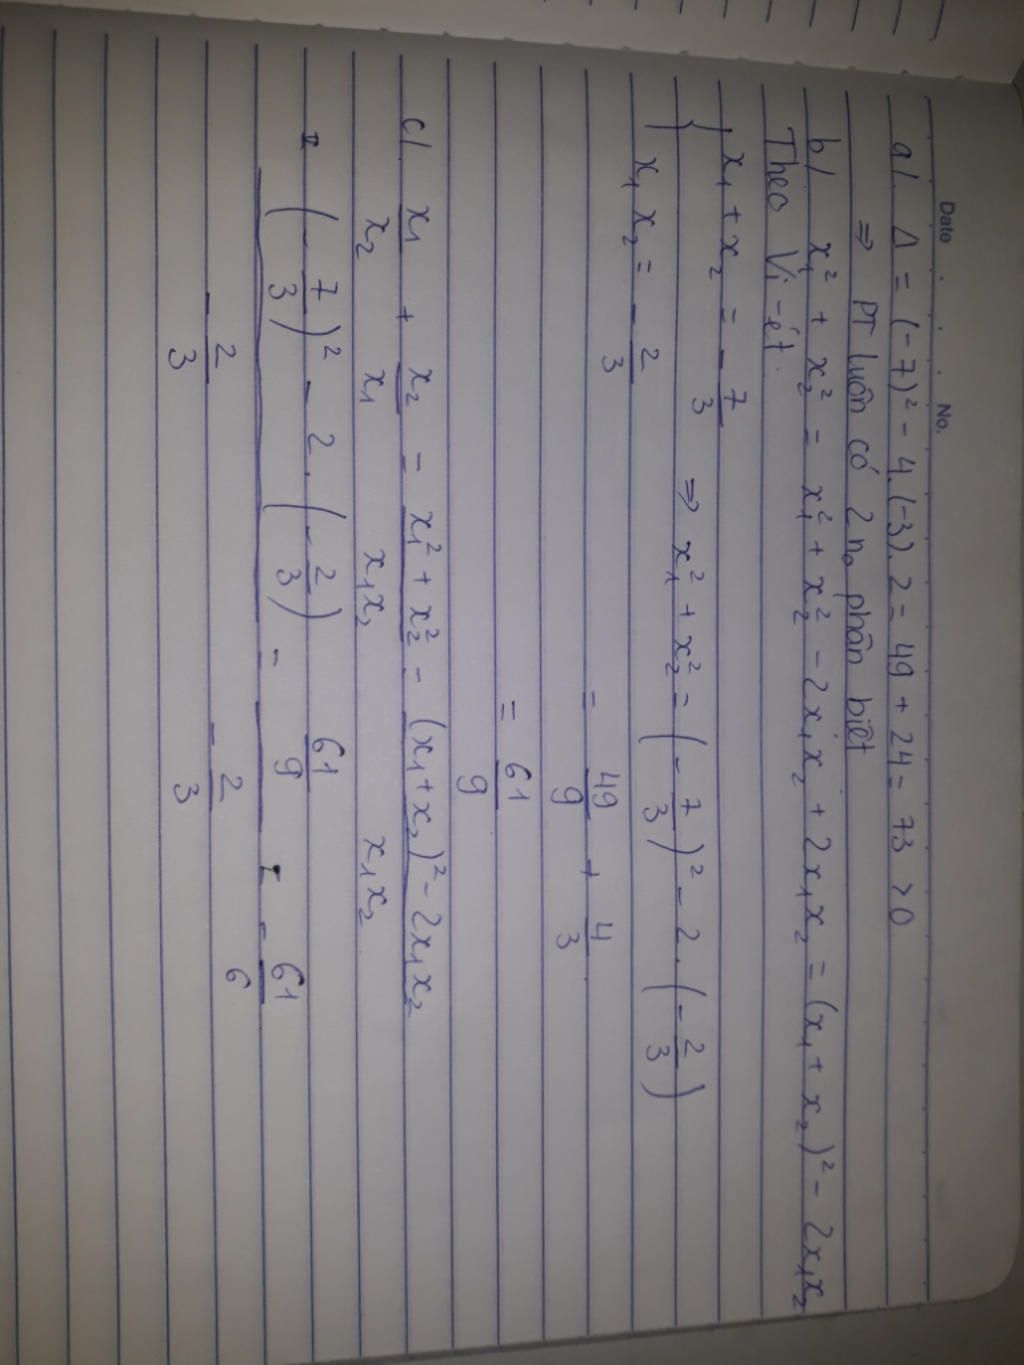 Date No.
a/. Δ = (-7)² - 4.(-3).2 = 49 + 24 = 73 > 0
⇒ PT luôn có 2 no phân biệt
b/ x₁² + x₂² = x₁² + x₂² - 2x₁x₂ + 2x₁x₂ = (x₁ + x₂)² - 2x₁x₂
Theo Vi-ét.
{ x₁ + x₂ = -7/3
x₁x₂ = -2/3 ⇒ x₁² + x₂² = (-7/3)² - 2.(-2/3)
= 49/9 + 4/3
= 61/9
c/ x₁/x₂ + x₂/x₁ = x₁² + x₂²/x₁x₂ = (x₁ + x₂)² - 2x₁x₂/x₁x₂
= (-7/3)² - 2.(-2/3)/-2/3 = 61/9/-2/3 = -61/6